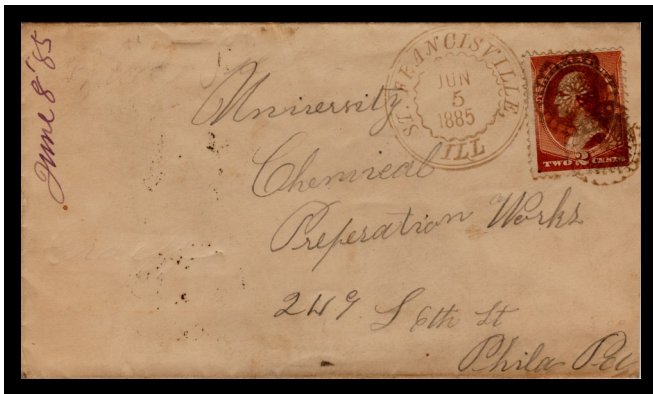 June 8 '85
ST. FRANCISVILLE,
JUN
5
1885
ILL
TWO 2 CENTS
University
Chemical
Preperation Works
249 S 6th St
Phila Pa